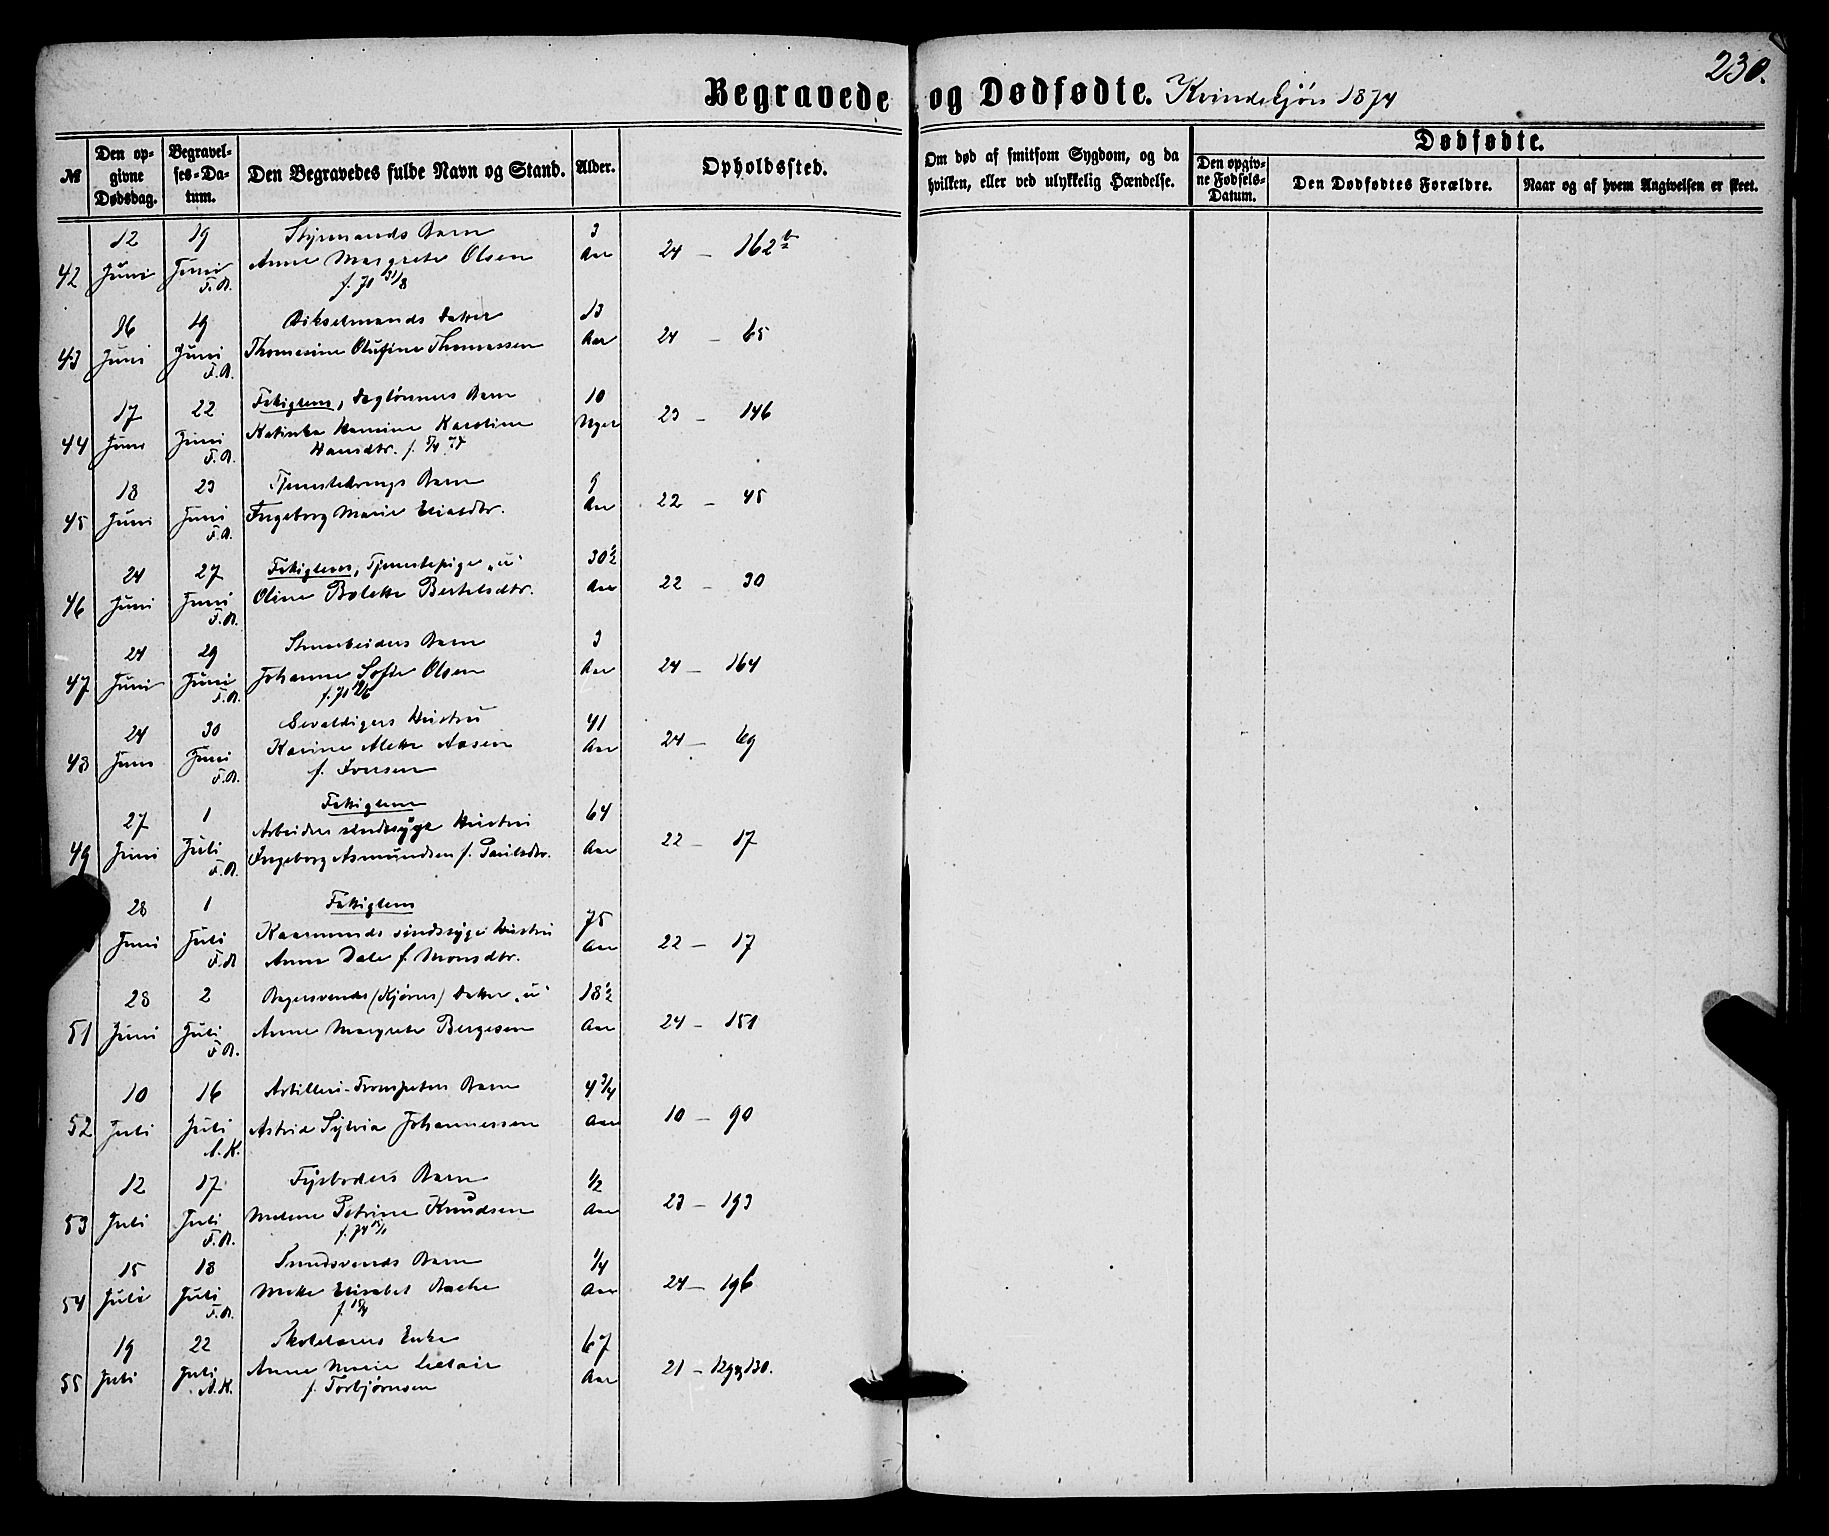 230.
Begravede og Dødfødte. Kvindekjön 1874
№
Den opgivne Dødsdag.
Begravelses-Datum.
Den Begravedes fulde Navn og Stand.
Alder.
Opholdssted.
Om død af smitsom Sygdom, og da hvilken, eller ved ulykkelig Hændelse.
Dødfødte.
Den opgivne Fødsels-Datum.
Den Dødfødtes Forældre.
Naar og af hvem Angivelsen er skeet.
12 19 Styrmands Barn 3
42 Juni Juni Anne Margrete Olsen Aar 24 – 162 b
F.B. f. 71 31/8
16 19 Datter 13
43 Juni Juni Thomasine Olufine Thomassen Aar 24 – 65
F.B.
17 22 Fattiglem, Daglönners Barn 10
44 Juni Juni Katinka Hansine Karoline Uger 23 – 146
F.B. Hansdtr. f.
18 23 Barn 9
45 Juni Juni Ingeborg Marie Aar 22 – 45
F.B.
24 27 Fattiglem, Tjenestepige „u" 30½
46 Juni Juni Oline Bolette Bertelsdtr. Aar 22 – 30
F.B.
24 29 Barn 3
47 Juni Juni Johanne Sofie Olsen Aar 24 – 164
F.B.
24 30 Gevaldigers Hustru 41
48 Juni Juni Karine Alette Aasen Aar 24 – 69
F.B. f. Iversen
Fattiglem
27 1 Arbeiders sindssyge Hustru 64
49 Juni Juli Ingeborg Asmundsen f. Paulsdtr. Aar 22 – 17
F.B.
28 1 Fattiglem 75
Juni Juli Kaarmands sindssyge Hustru Aar 22 – 17
F.B. Anne Dale f. Monsdtr.
28 2 Bagersvends (Kjørners) Datter „u" 18½
51 Juni Juli Anne Margrete Bergesen Aar 24 – 151
F.B.
10 16 Artilleri-Trompeters Barn 4 3/4
52 Juli Juli Astrid Sylvia Johannessen Aar 10 – 90
A.K.
12 17 Fyrböders Barn 1/2
53 Juli Juli Petrine Knudsen Aar 23 – 193
F.B.
15 18 Barn 1/4
54 Juli Juli Mette Elisabet Aar 24 – 196
F.B.
19 22 Skolelærers Enke 67
55 Juli Juli Anne Marie Aar 21 – 129 & 130.
A.K. f. Torbjørnsen